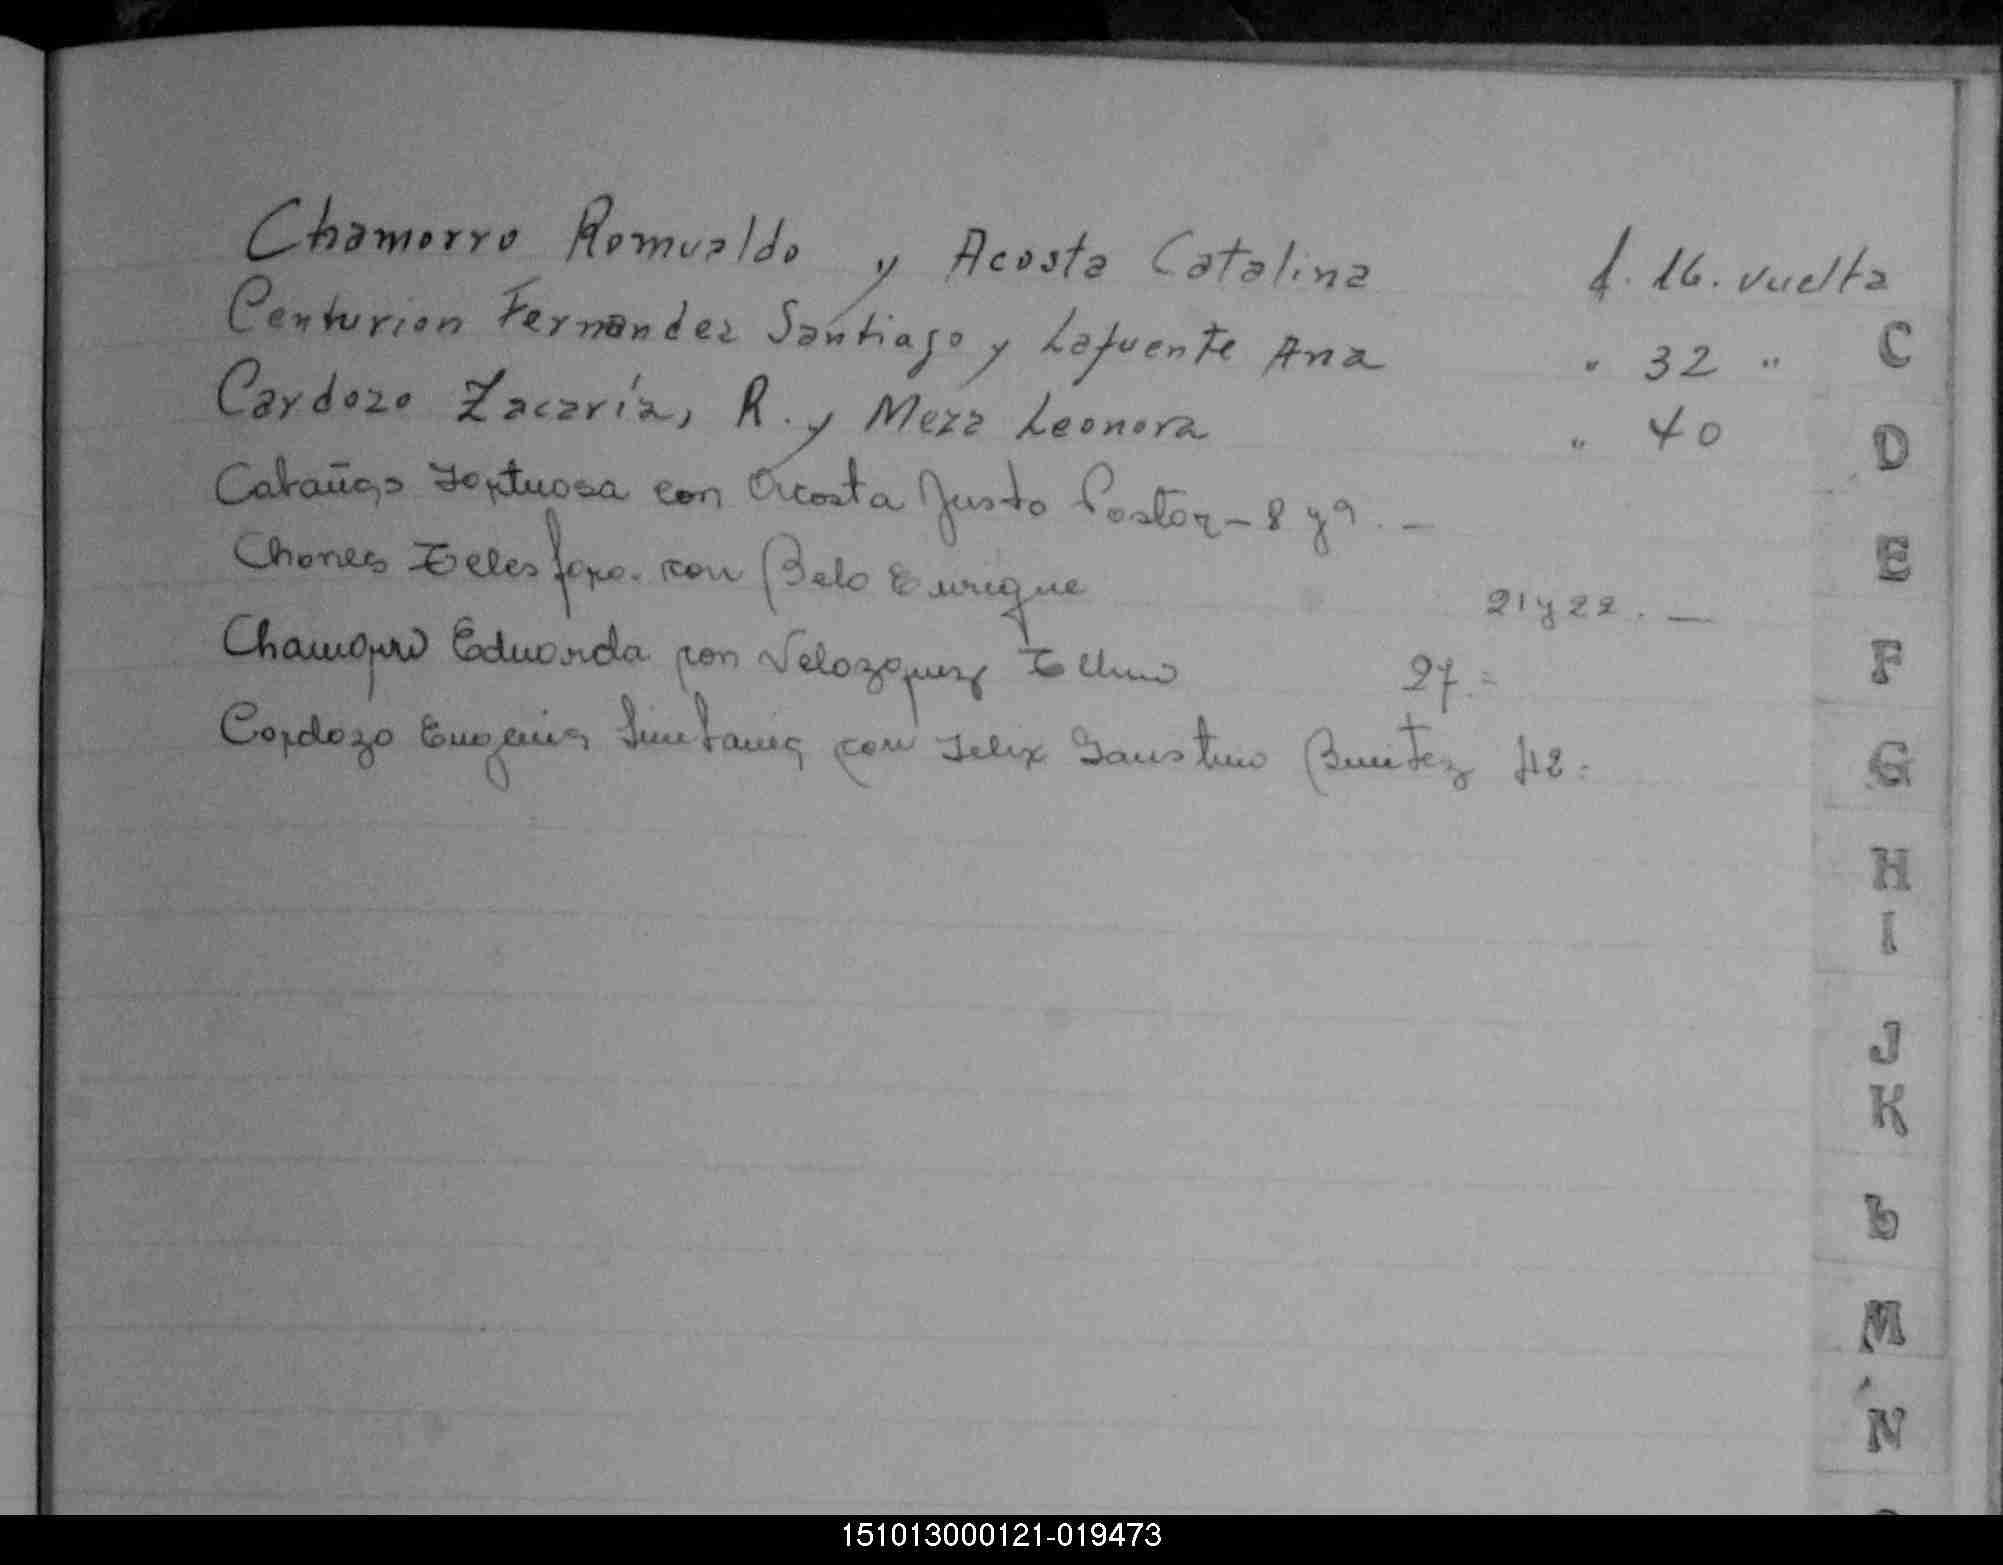 Chamorro Romualdo y Acosta Catalina f. 16. vuelta
Centurion Fernandez Santiago y Lafuente Ana " 32 "
Cardozo Zacaría, R. y Meza Leonora " 40
Cabañas con Acosta Justo Pastor - 8 y 9. -
Telesforo. con Belo Enrique 21 y 22. -
Chamorro Eduarda con Velazquez 27.=
Cardozo Eugenia con Felix Faustino Benitez 42=
C
D
E
F
G
H
I
J
K
L
M
N
151013000121-019473